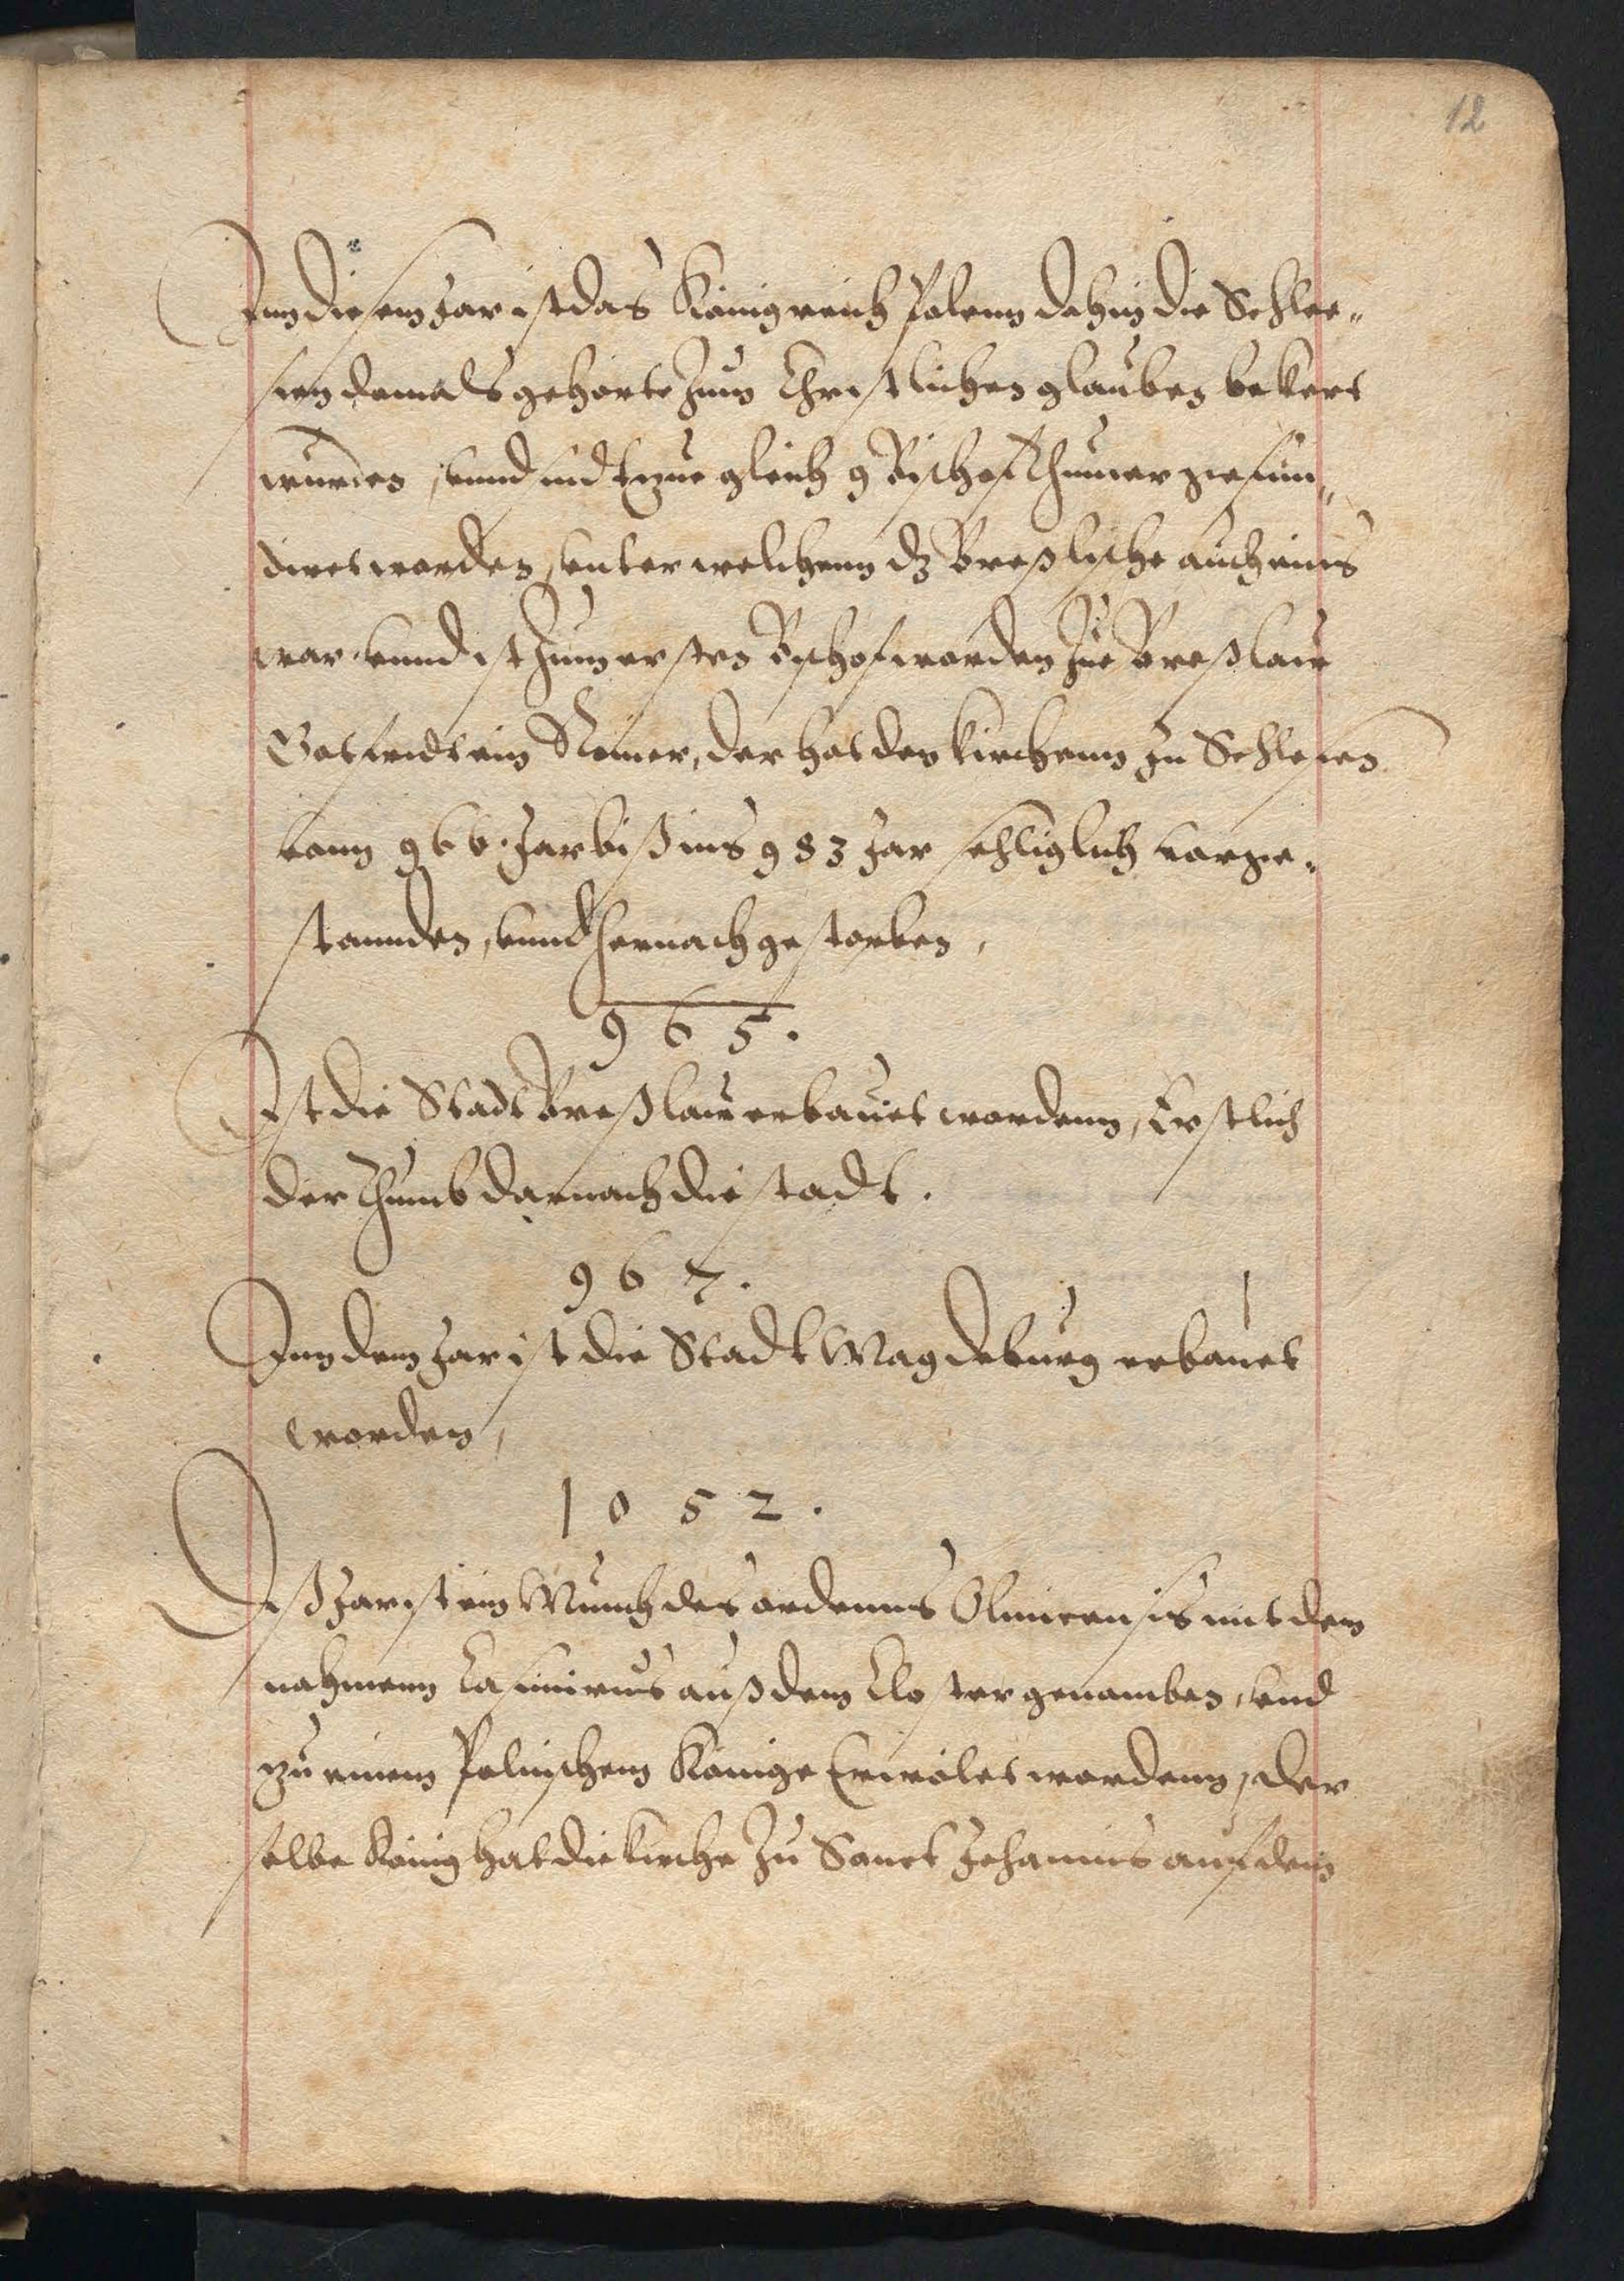 12
Inn diesem Jar ist das Königreich Polenn dahin die Schle=
sien damals gehorte zum Christlichen glauben bekert
wurden, vnnd sind zugleich 9 Bischofthumer gefun=
diret worden, vnter welchenn dz Breßlische auch eins
war. vnnd ist zum ersten Bischof worden zue Breßlaw
Gotfridt ein Römer, der hat den kirchenn zu Schlesien
vom 966. Jar biß ins 983 Jar sehliglich vorge=
stannden, vnnd hernach gestorben,
965.
Ist die Stadt Breßlaw erbauet wordenn, Erstlich
der Thumb darnach die stadt.
967.
Inn dem Jar ist die Stadt Magdeburg erbauet
worden,
1052.
Diß Jar ist ein Münch des ordenns Clunicensis mit dem
nahmenn Casimirus auß dem Closter genomben, vnd
zu einem Polnischenn Könige Erwölet wordenn, der
selbe König hat die kirche zu Sanct Johannis auf dem